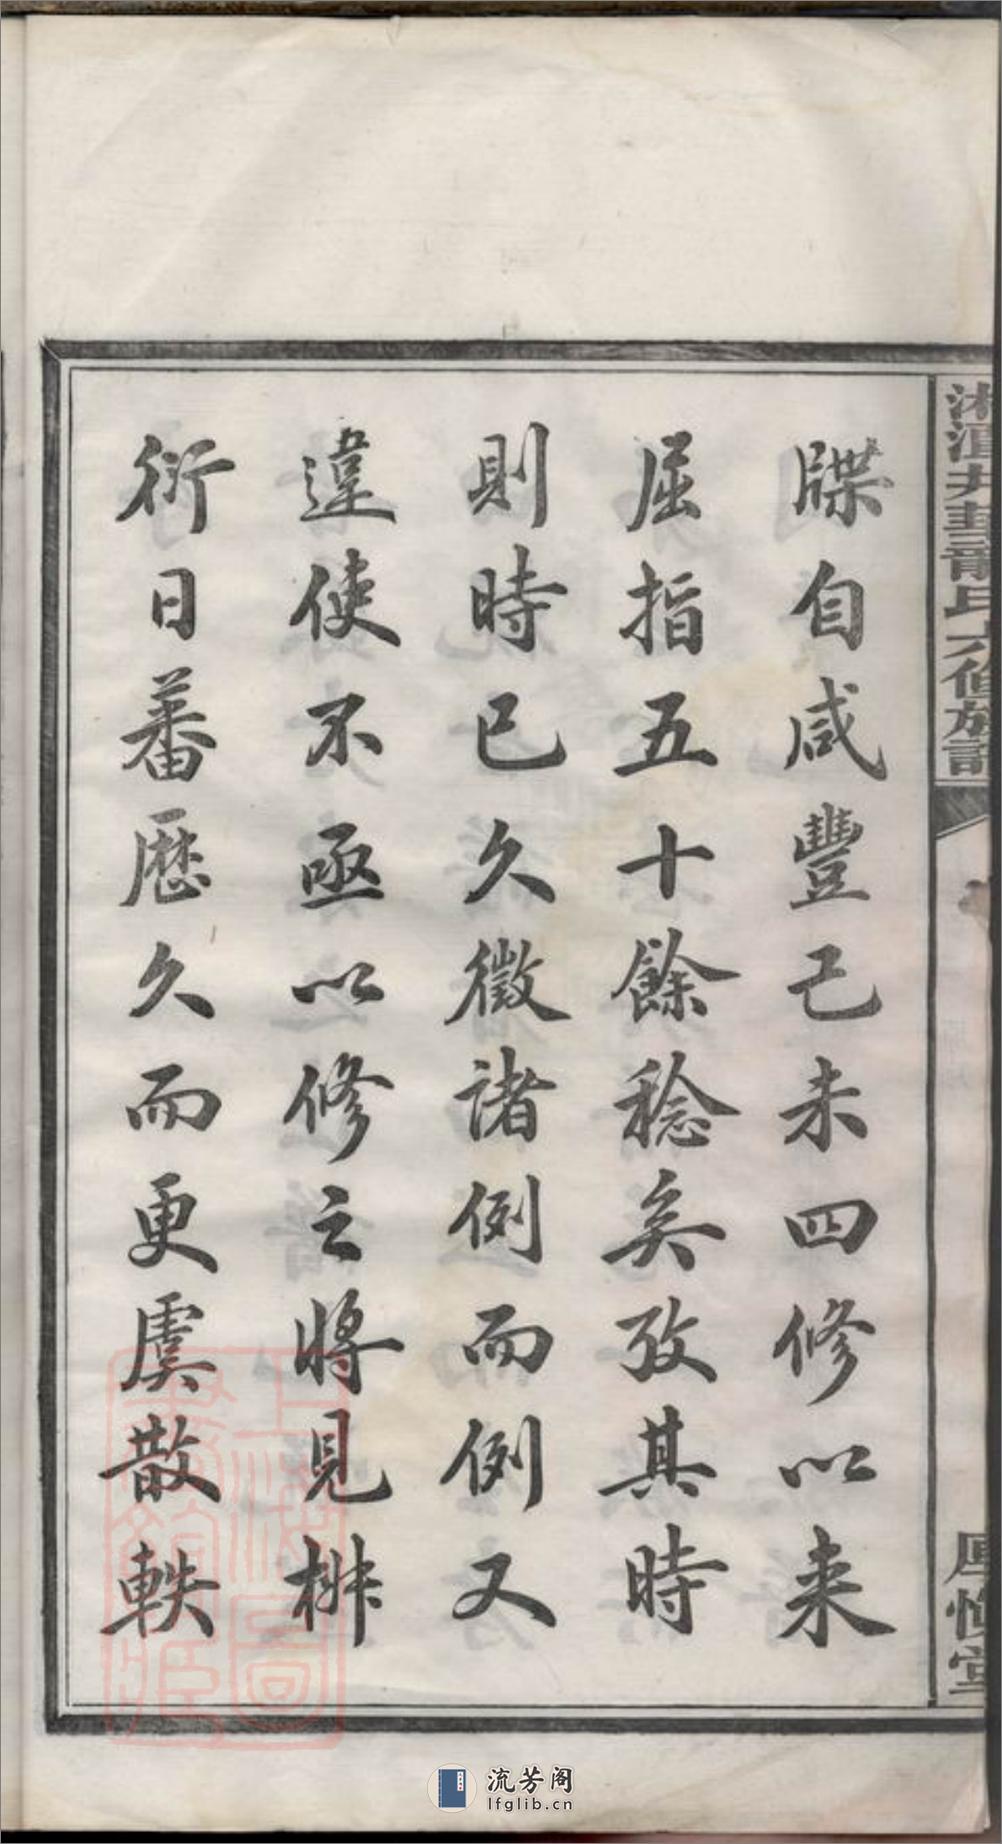 牒自咸豐己未四修以来
屈指五十餘稔矣攷其時
則時已久徵諸例而例又
違使不亟以修之將見椒
衍日蕃歷久而更虞散軼
氏六修族譜
厚慎堂
上海圖書館藏
流芳阁
lfglib.cn